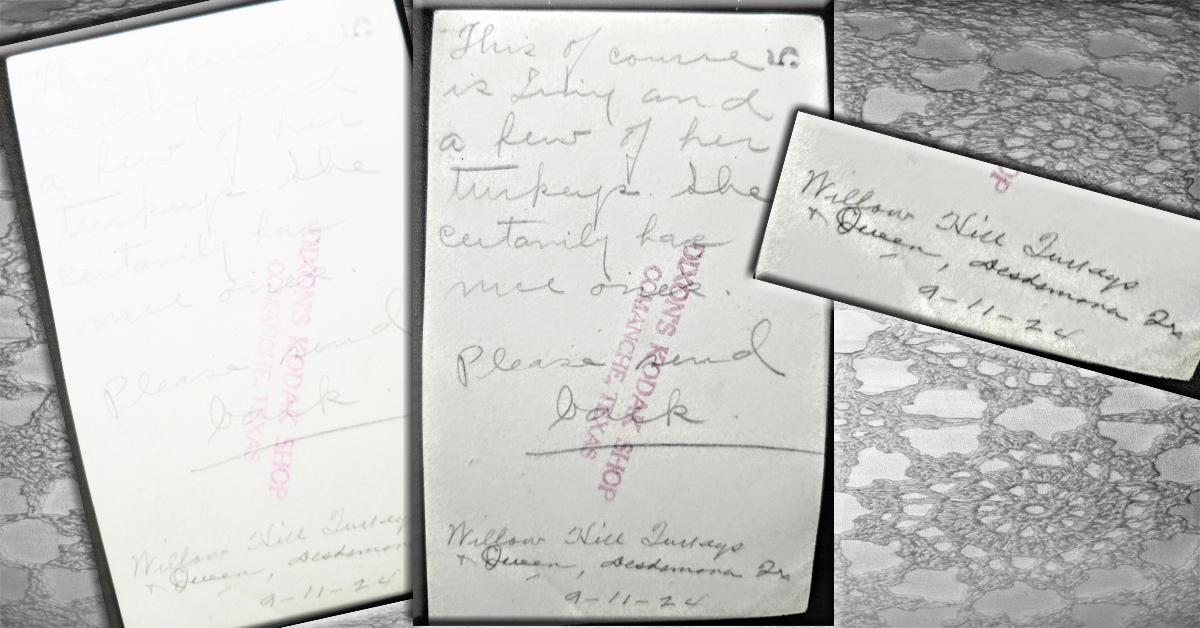 This of course
is Liny and
a few of her
turkeys. She
certanily has
nice ones.
Please send
back.
5
DIXON'S KODAK SHOP
COMANCHE, TEXAS
Willow Hill Turkeys
+ Queen, Desdemona
9-11-24
This of course
and
a few of her
turkeys. She
certanily has
nice ones.
Please send
back.
5
DIXON'S KODAK SHOP
COMANCHE, TEXAS
Willow Hill Turkeys
+ Queen, Desdemona Tx
9-11-24
OP
Willow Hill Turkeys
+ Queen, Desdemona Tx
9-11-24